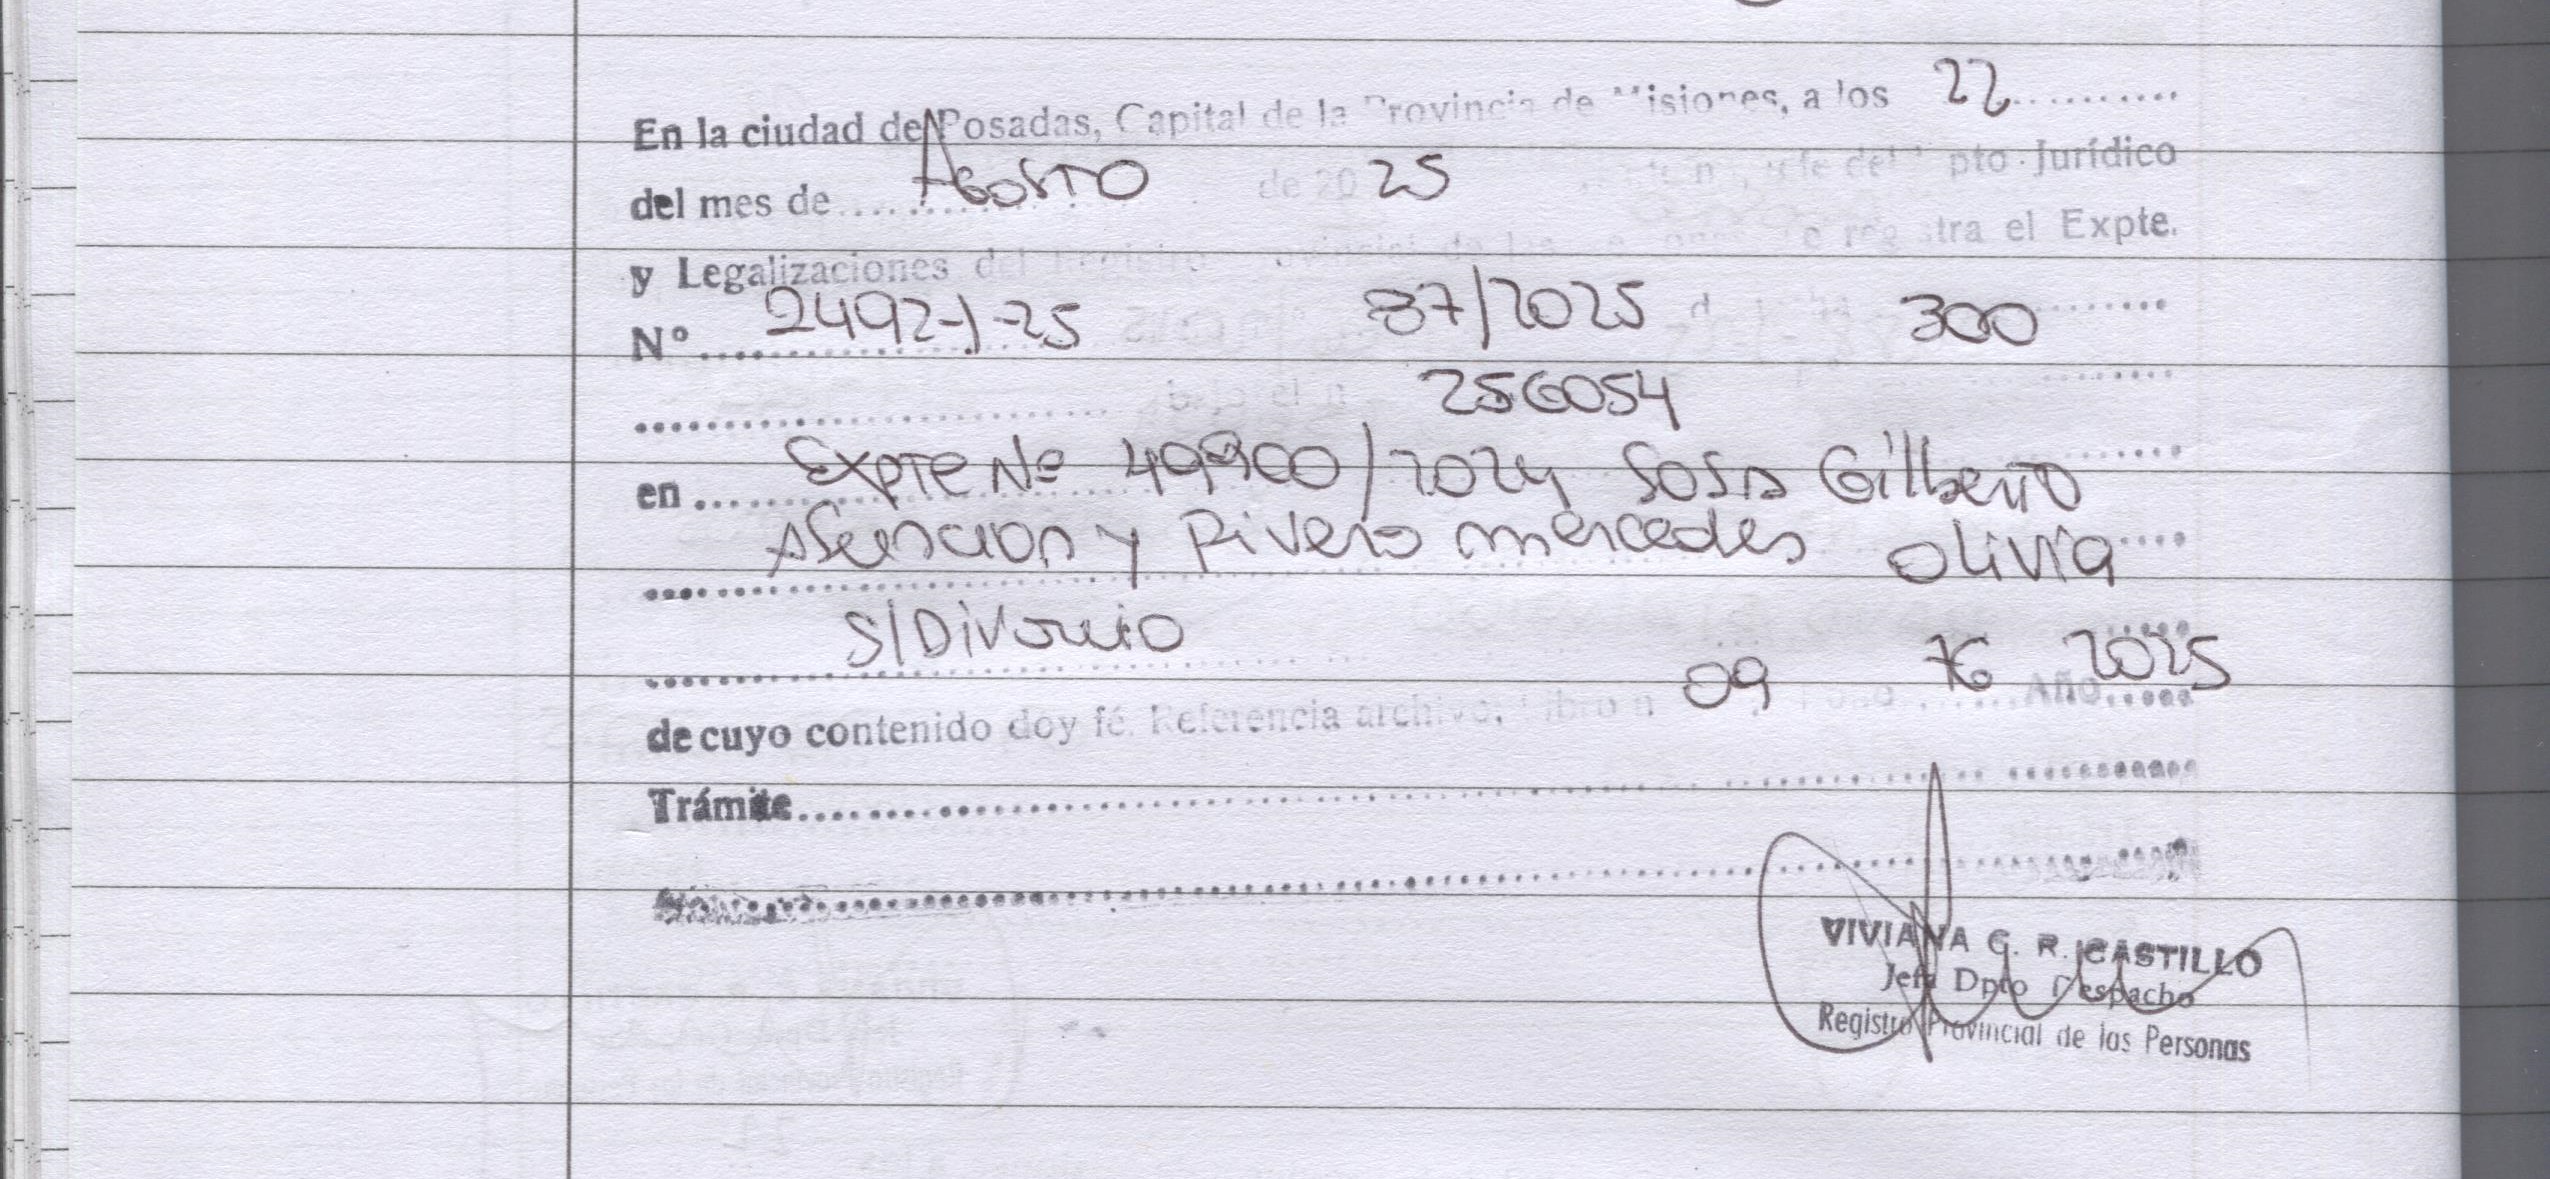 En la ciudad de Posadas, Capital de la Provincia de Misiones, a los 22..........
del mes de.... Agosto de 20 25 Jefe del Dpto. Jurídico
y Legalizaciones del Registro Provincial de las se registra el Expte.
Nº.... 2492-J-25 87/2025 300
bajo el n 256054
en.... Expte Nº 49900/2024 Sosa Gilberto
Asuncion y Rivero mercedes olivia
S/Divorcio
de cuyo contenido doy fé. Referencia archivo, Libro n 09 Folio 76 Año 2025
Trámite
VIVIANA G. R. CASTILLO
Jefa Dpto Despacho
Registro Provincial de las Personas